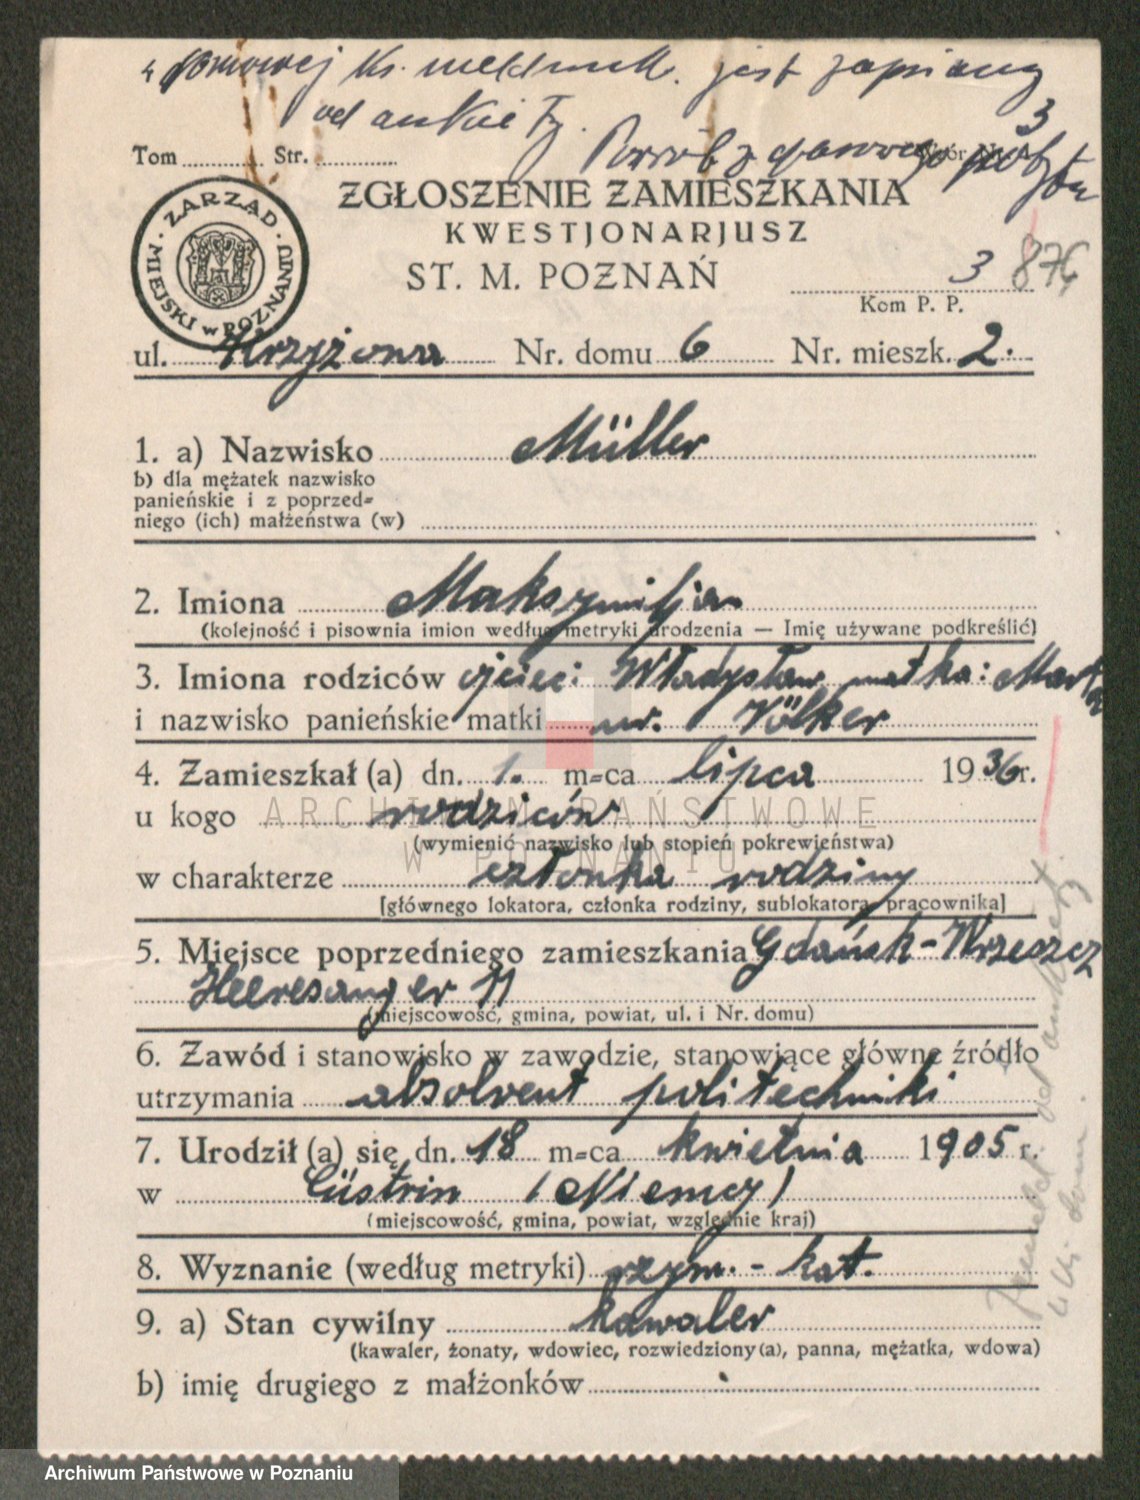 w domowej ks. meldunk. jest zapisany
od ankiety.
3
Tom ........... Str. ............
ZGŁOSZENIE ZAMIESZKANIA
KWESTJONARJUSZ
ST. M. POZNAŃ
3 876
Kom P. P.
ZARZĄD MIEJSKI w POZNANIU
ul. Krzyżowa Nr. domu 6 Nr. mieszk. 2.
1. a) Nazwisko Müller
b) dla mężatek nazwisko
panieńskie i z poprzed=
niego (ich) małżeństwa (w)
2. Imiona Maksymiljan
(kolejność i pisownia imion według metryki urodzenia — Imię używane podkreślić)
3. Imiona rodziców ojciec: Władysław matka: Marta
i nazwisko panieńskie matki ur. Völker
4. Zamieszkał (a) dn. 1. m=ca lipca 1936 r.
u kogo rodziców
(wymienić nazwisko lub stopień pokrewieństwa)
w charakterze członka rodziny
[głównego lokatora, członka rodziny, sublokatora, pracownika]
5. Miejsce poprzedniego zamieszkania Gdańsk-Wrzeszcz
Heeresanger 11
(miejscowość, gmina, powiat, ul. i Nr. domu)
6. Zawód i stanowisko w zawodzie, stanowiące główne źródło
utrzymania absolvent politechniki
7. Urodził (a) się dn. 18 m=ca kwietnia 1905 r.
w Cüstrin (Niemcy)
(miejscowość, gmina, powiat, względnie kraj)
8. Wyznanie (według metryki) rzym. - kat.
9. a) Stan cywilny kawaler
(kawaler, żonaty, wdowiec, rozwiedziony(a), panna, mężatka, wdowa)
b) imię drugiego z małżonków
od ankiety
ARCHIWUM PAŃSTWOWE
W POZNANIU
Archiwum Państwowe w Poznaniu